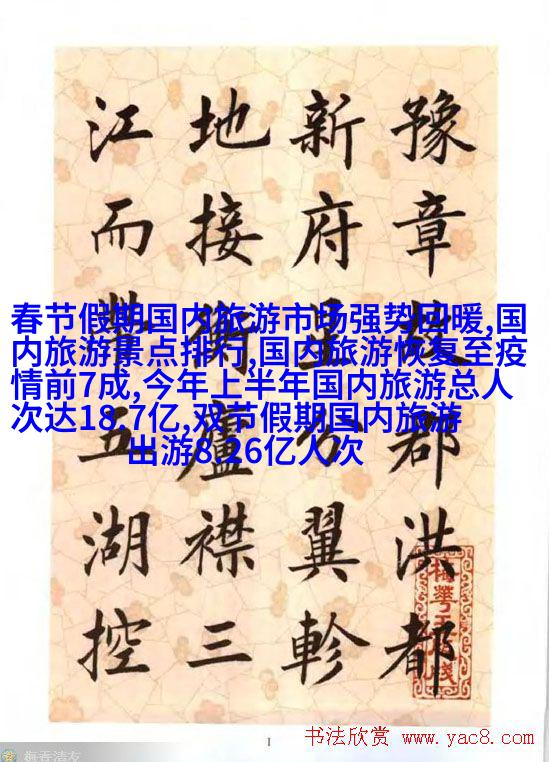 豫章故郡洪都
新府星分翼軫
地接衡廬襟三
江而帶五湖控
春节假期国内旅游市场强势回暖,国
内旅游景点排行,国内旅游恢复至疫
情前7成,今年上半年国内旅游总人
次达18.7亿,双节假期国内旅游
出游8.26亿人次
1
书法欣赏 www.yac8.com